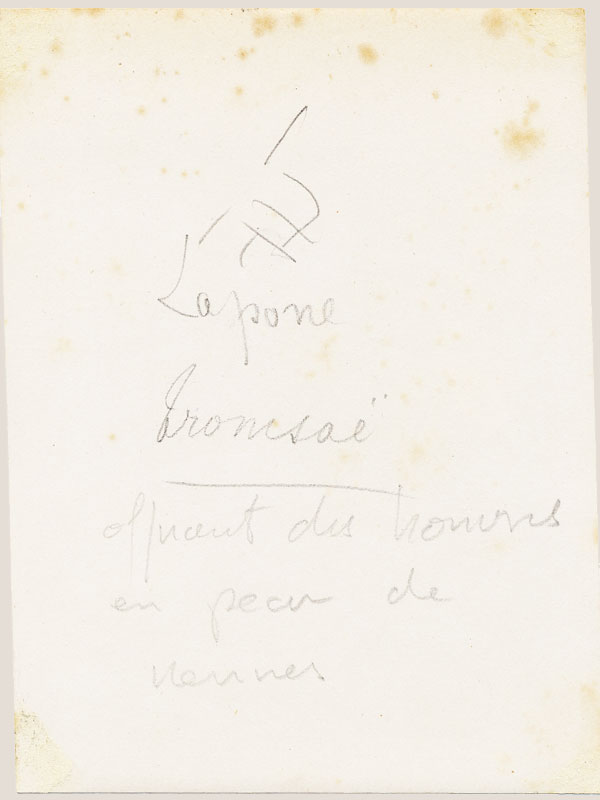 Lapone
Tromsaë
offrant des
en peau de
rennes